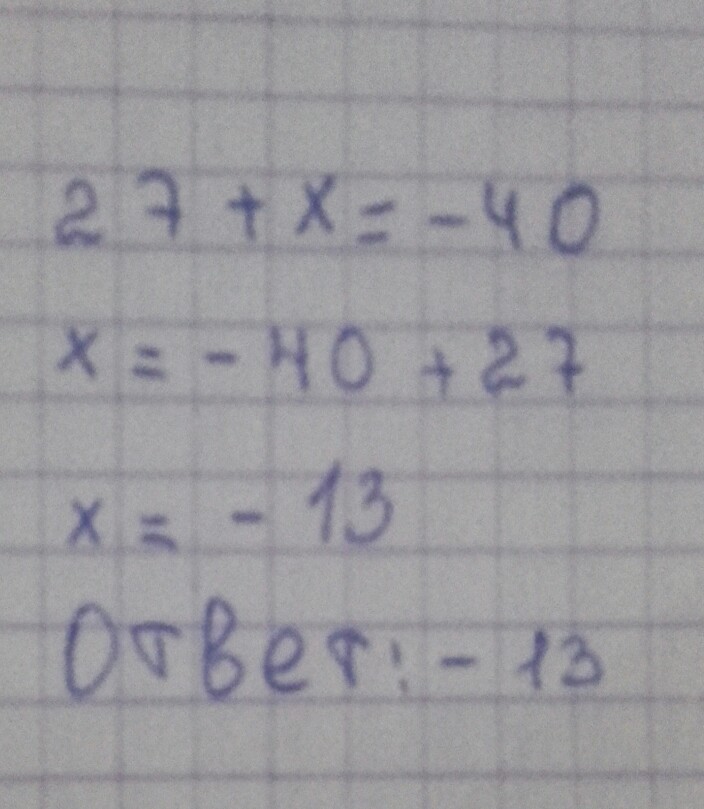 27 + x = -40
x = - 40 + 27
x = - 13
Ответ: - 13